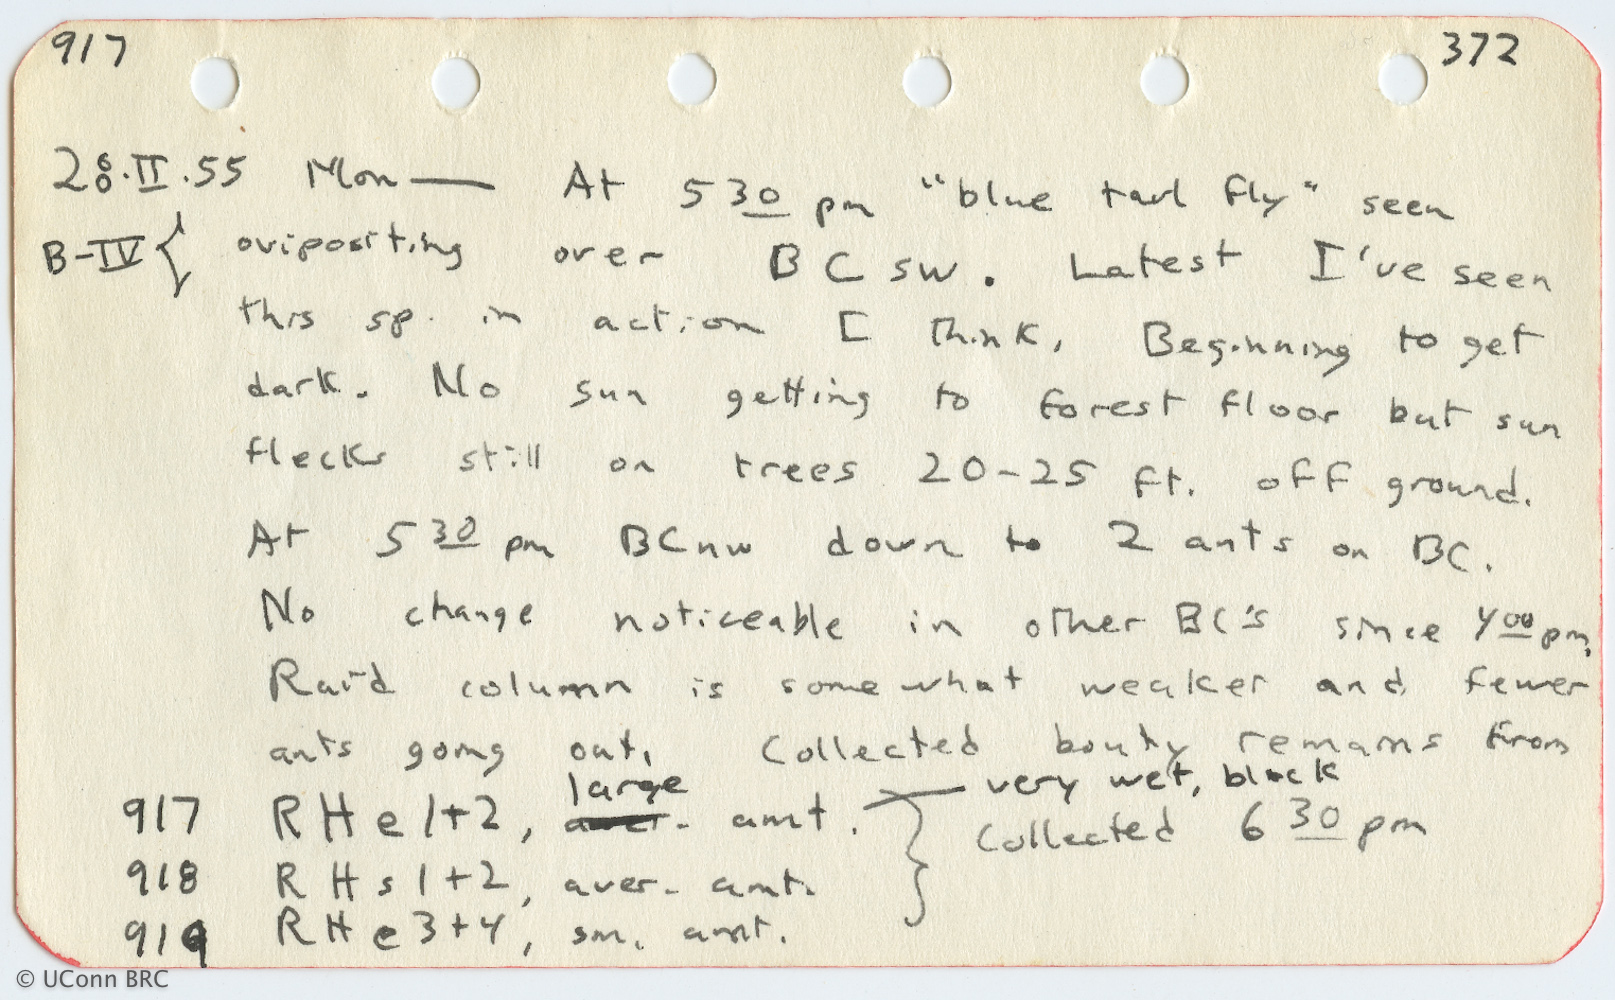 917 372
28.II.55 Mon— At 5 30 pm "blue tail fly" seen
B-IV { ovipositing over BCsw. Latest I've seen
this sp. in action I think. Beginning to get
dark. No sun getting to forest floor but sun
flecks still on trees 20-25 ft. off ground.
At 5 30 pm BCnw down to 2 ants on BC.
No change noticeable in other BC's since 4 00 pm.
Raid column is somewhat weaker and fewer
ants going out. Collected booty remains from
917 RHe1+2, large aver. amt. — very wet, black
918 RHs1+2, aver. amt. } Collected 6 30 pm
919 RHe3+4, sm. amt.
© UConn BRC